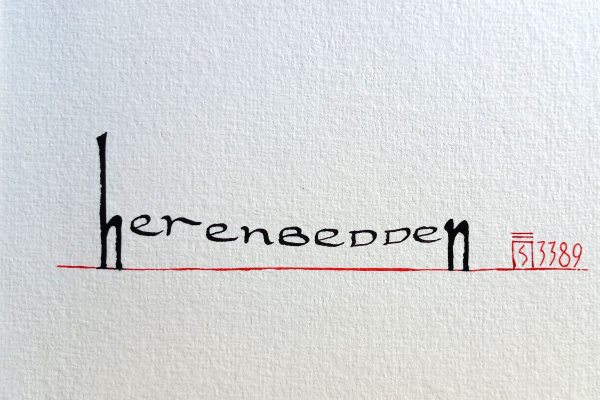 herenbedden S 3389